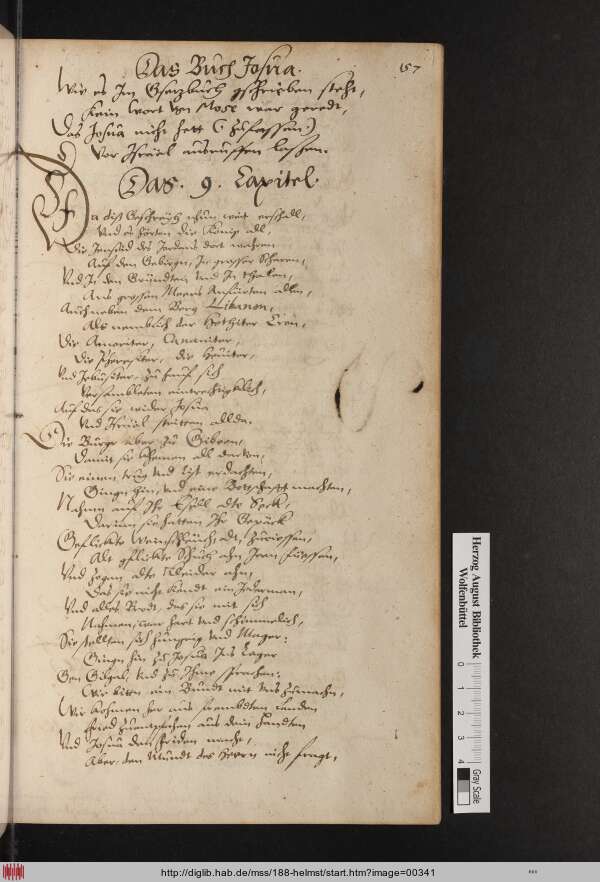 Das Buch Josua.
157
Wie es Im Gsatzbuch gschrieben steht,
Kain Wort von Mose war geredt,
Das Josua nicht hett (zulassen)
Vor Israel ausruffen lassen.
Das. 9. Capitel.
Da diß Geschray nhun weit erschall,
Und es hörten die König all,
Die Jenseid des Jordans dort wahren
Auf den Gebirgen, In grosser Scharen,
Und In den Gründten und In thalen,
Ans grossen Meers Anfurten allen,
Auch neben dem Berg Libanon,
Als nemblich der Hethiter
Die Amoriter, Cananiter,
Die Pheresiter, die Heviter,
Und Jebusiter, zu hauf sich
Versambleten aintrechtigklich,
Auf das sie wider Josua
Und Israel stritten allda.
Die Burger aber zu Gibeon,
Damit sie khemen all darvon,
Sie einen trug und list erdachten,
Giengen hin, und eine Bottschafft machten,
Nahmen auf Ihr Esell alte Seck,
Darinn sie hatten Ihr Gepäck
Geflickte Weinschleuch, alt, zurissen,
Alt gflickte Schuch ahn Iren füessen,
Und zogen alte Klaider ahn,
Das sie nicht kandt ein Jederman,
Und alles Brodt, das sie mit sich
Nahmen, war hart und schimmelich,
Sie stellten sich hungrig und Mager:
Giengen hin zu Josua Ins Lager
Gen Gilgal, und zu Ihme sprachen:
Wir bitten ein Bundt mit uns zumachn,
Wir kohmen her aus frembdten Landen
Fried zuempfahen aus dein handten
Und Josua den friden macht,
Aber den Mundt des Herrn nicht fragt,
Herzog August Bibliothek
Wolfenbüttel
0 1 2 3 4
Gray Scale
http://diglib.hab.de/mss/188-helmst/start.htm?image=00341